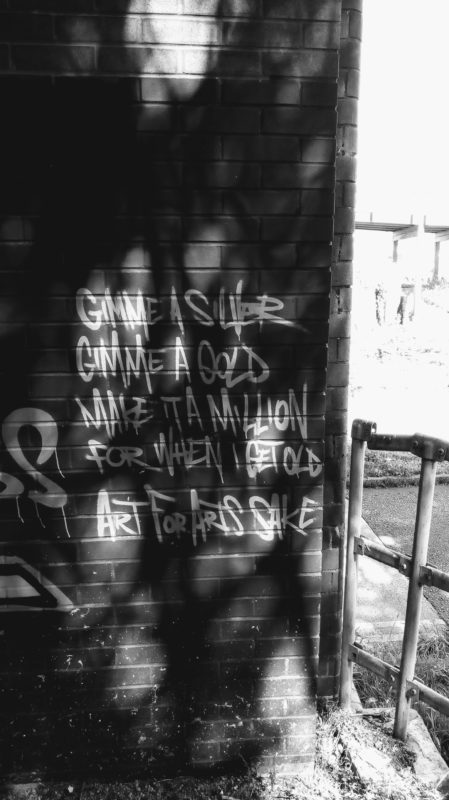 GIMME A SILVER
GIMME A GOLD
MAKE IT A MILLION
FOR WHEN I GET OLD
ART FOR ARTS SAKE